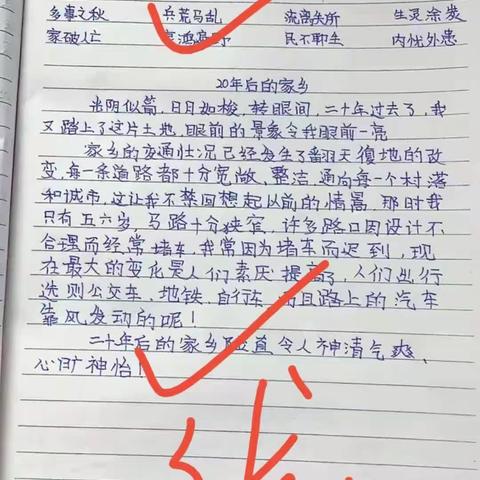 多事之秋 兵荒马乱 流离失所 生灵涂炭
家破人亡 哀鸿遍野 民不聊生 内忧外患
20年后的家乡
光阴似箭,日月如梭,转眼间,二十年过去了,我
又踏上了这片土地,眼前的景象令我眼前一亮
家乡的交通状况已经发生了翻天覆地的改
变,每一条道路都十分宽敞、整洁,通向每一个村落
和城市,这让我不禁回想起以前的情景,那时我
只有五六岁,马路十分狭窄,许多路口因设计不
合理而经常堵车,我常因为堵车而迟到,现
在最大的变化是人们素质提高了,人们出行
选则公交车、地铁、自行车,而且路上的汽车
靠风发动的呢!
二十年后的家乡简直令人神清气爽、
心旷神怡!